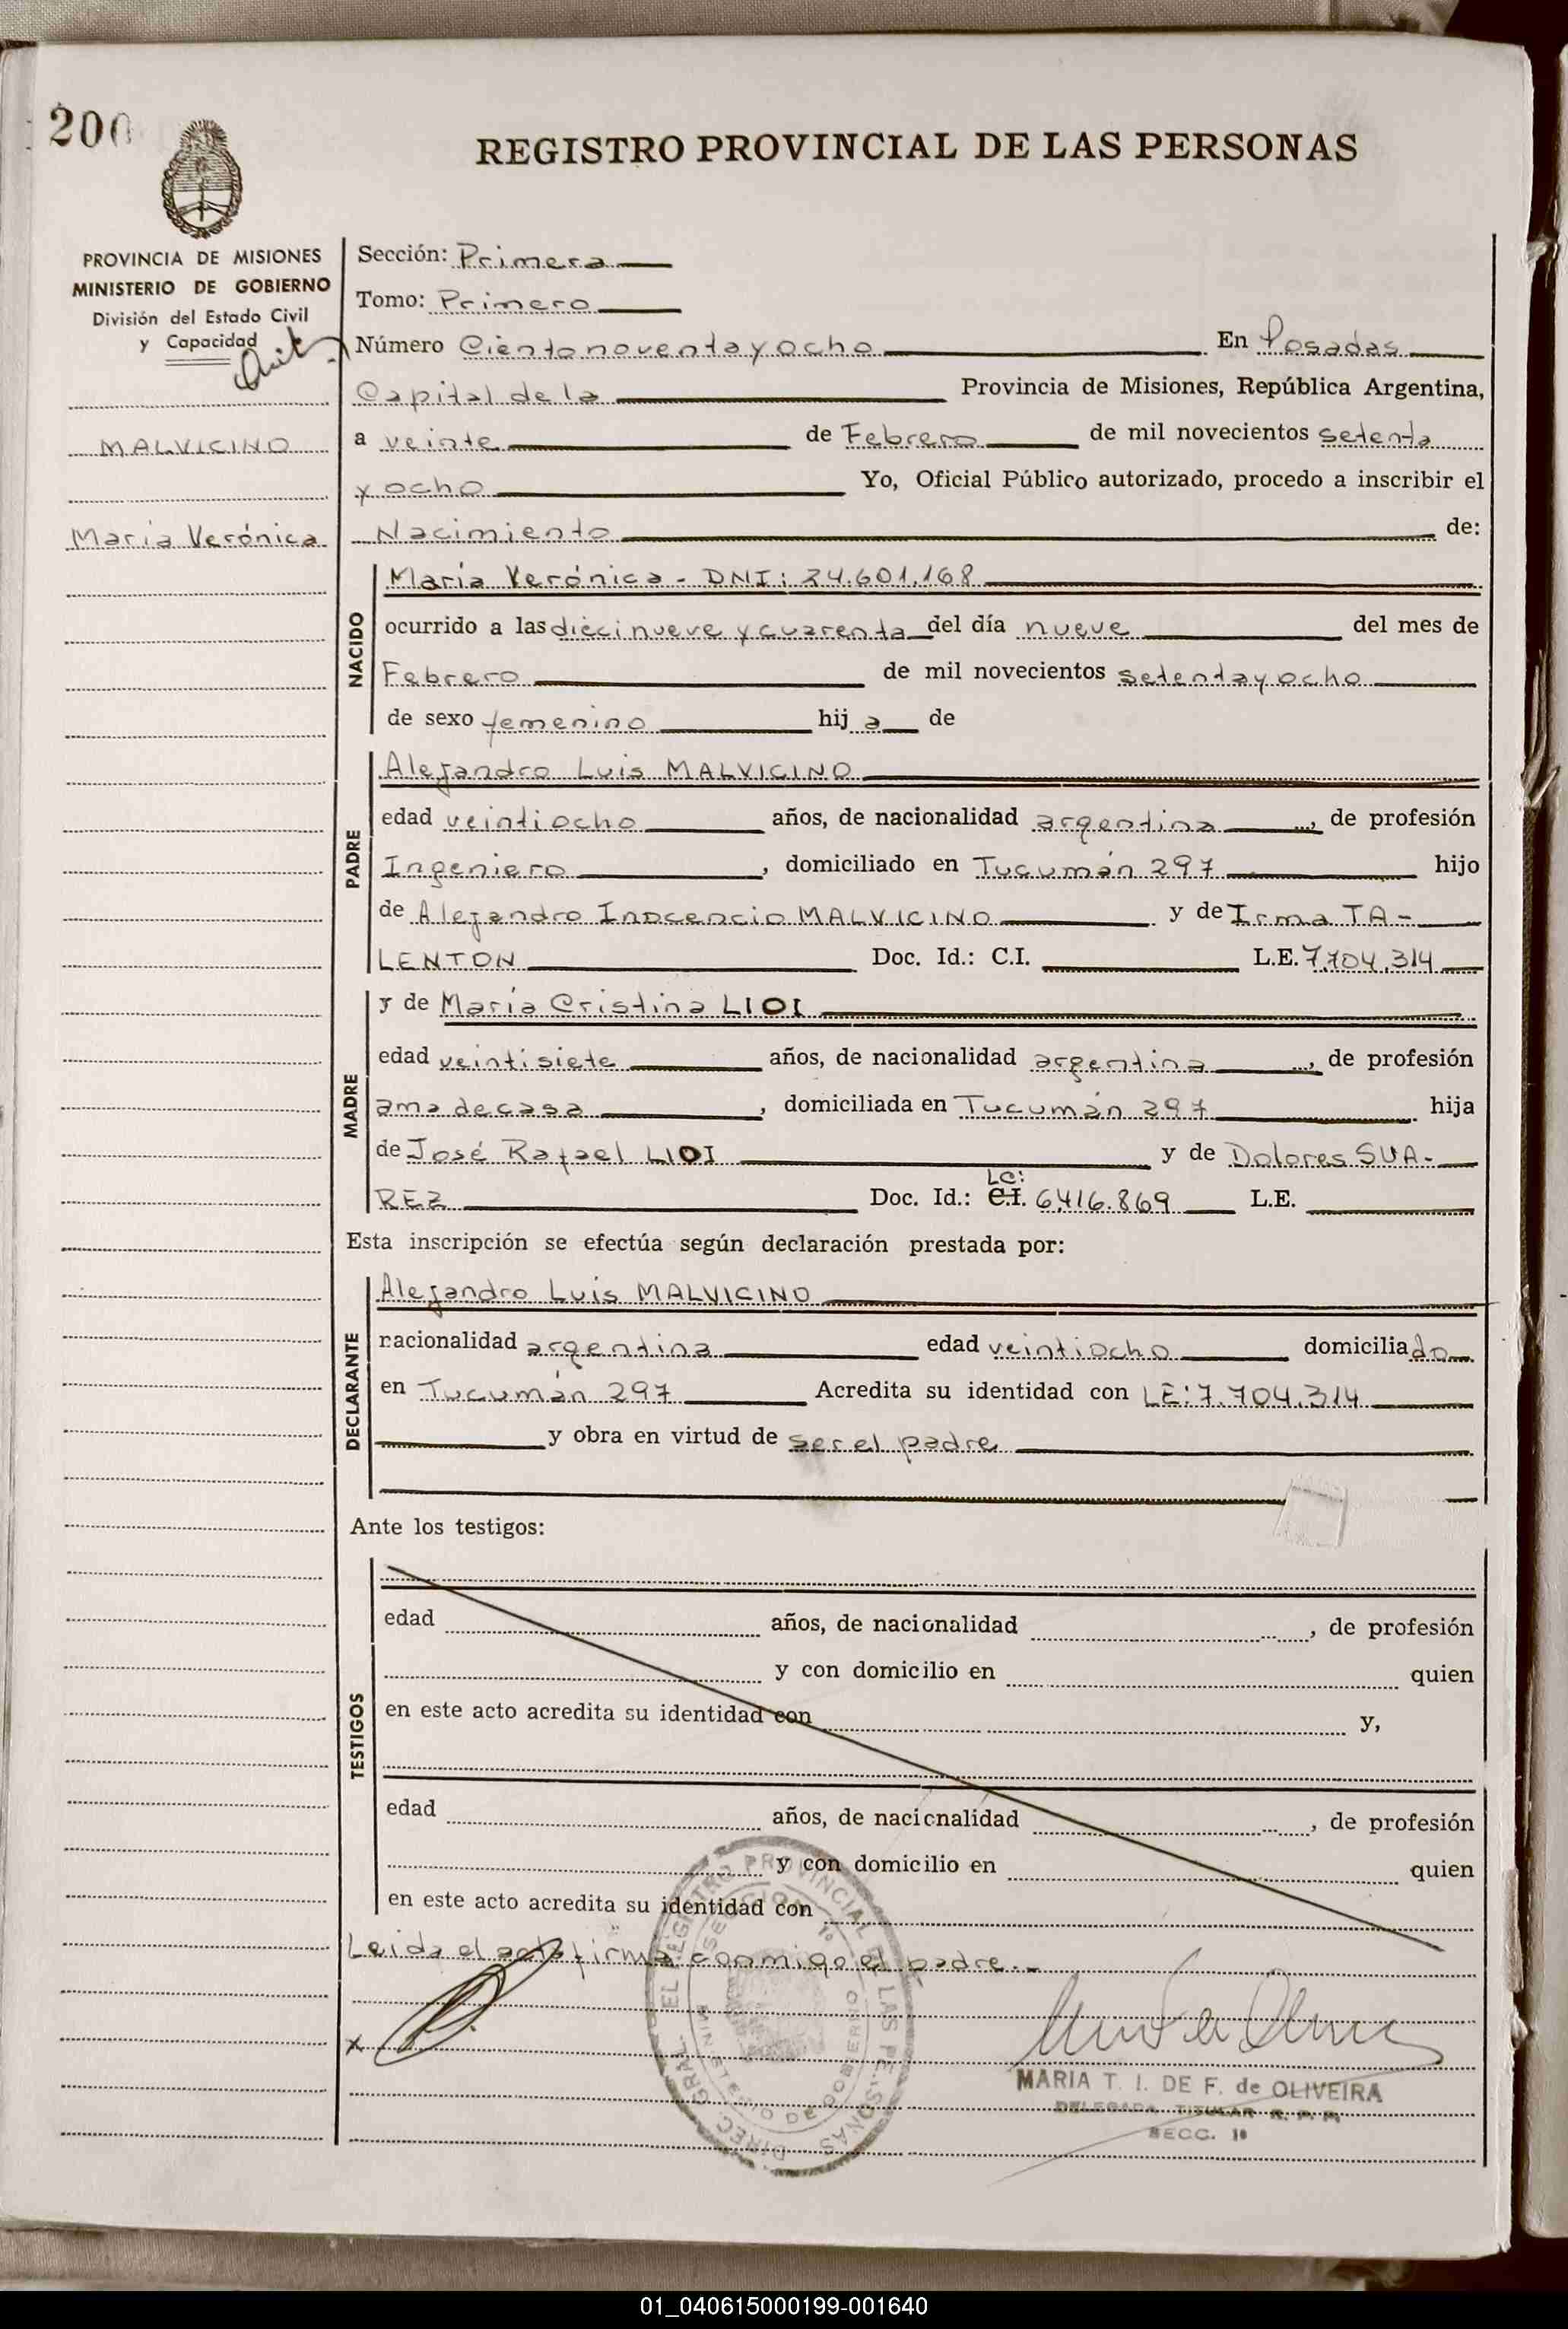 200
REGISTRO PROVINCIAL DE LAS PERSONAS
PROVINCIA DE MISIONES
MINISTERIO DE GOBIERNO
División del Estado Civil
y Capacidad
MALVICINO
María Verónica
Sección: Primera
Tomo: Primero
Número Ciento noventa y ocho En Posadas
Capital de la Provincia de Misiones, República Argentina,
a veinte de Febrero de mil novecientos setenta
y ocho Yo, Oficial Público autorizado, procedo a inscribir el
Nacimiento de:
NACIDO
María Verónica - DNI: 24.601.168
ocurrido a las diecinueve y cuarenta del día nueve del mes de
Febrero de mil novecientos setenta y ocho
de sexo femenino hija de
PADRE
Alejandro Luis MALVICINO
edad veintiocho años, de nacionalidad argentina, de profesión
Ingeniero, domiciliado en Tucumán 297 hijo
de Alejandro Inocencio MALVICINO y de Irma TA-
LENTON Doc. Id.: C.I. L.E. 7.704.314
MADRE
y de María Cristina LIOI
edad veintisiete años, de nacionalidad argentina, de profesión
ama de casa, domiciliada en Tucumán 297 hija
de José Rafael LIOI y de Dolores SUA-
LC:
REZ Doc. Id.: C.I. 6.416.869 L.E.
Esta inscripción se efectúa según declaración prestada por:
DECLARANTE
Alejandro Luis MALVICINO
nacionalidad argentina edad veintiocho domiciliado
en Tucumán 297 Acredita su identidad con LE: 7.704.314
y obra en virtud de ser el padre
Ante los testigos:
TESTIGOS
edad años, de nacionalidad, de profesión
y con domicilio en quien
en este acto acredita su identidad con y,
edad años, de nacionalidad, de profesión
y con domicilio en quien
en este acto acredita su identidad con
Leida el acta firma conmigo el padre.-
x
DIREC. GRAL. EL REGISTRO PROVINCIAL DE LAS PERSONAS
SECCION 1º
MINISTERIO DE GOBIERNO
MARIA T. I. DE F. de OLIVEIRA
DELEGADA TITULAR R. P. P.
SECC. 1º
01_040615000199-001640